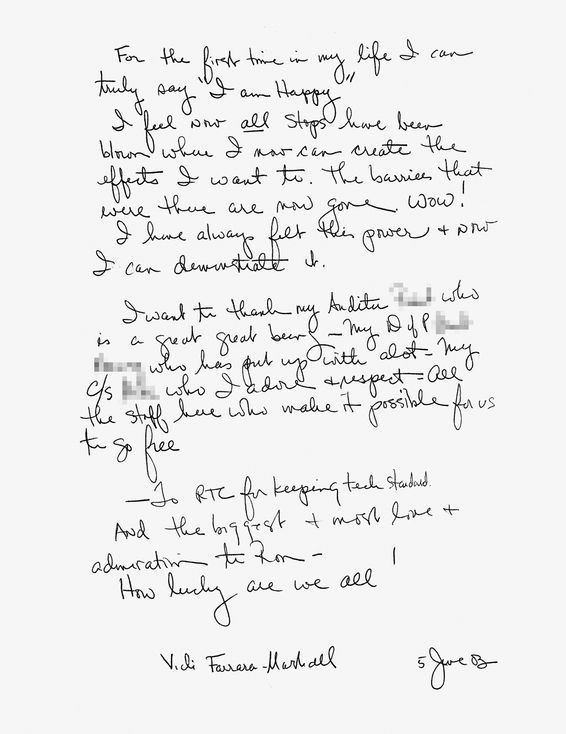 For the first time in my life I can
truly say "I am Happy"
I feel now all stops have been
blown where I now can create the
effects I want to. The barriers that
were there are now gone. Wow!
I have always felt this power + now
I can demonstrate it.
I want to thank my Auditor who
is a great great being – My D of P
who has put up with alot – My
C/S who I adore + respect – All
the staff here who make it possible for us
to go free
– To RTC for keeping tech standard.
And the biggest + most love +
admiration to Ron –
How lucky are we all !
Vicki Farrara-Marshall 5 June 03